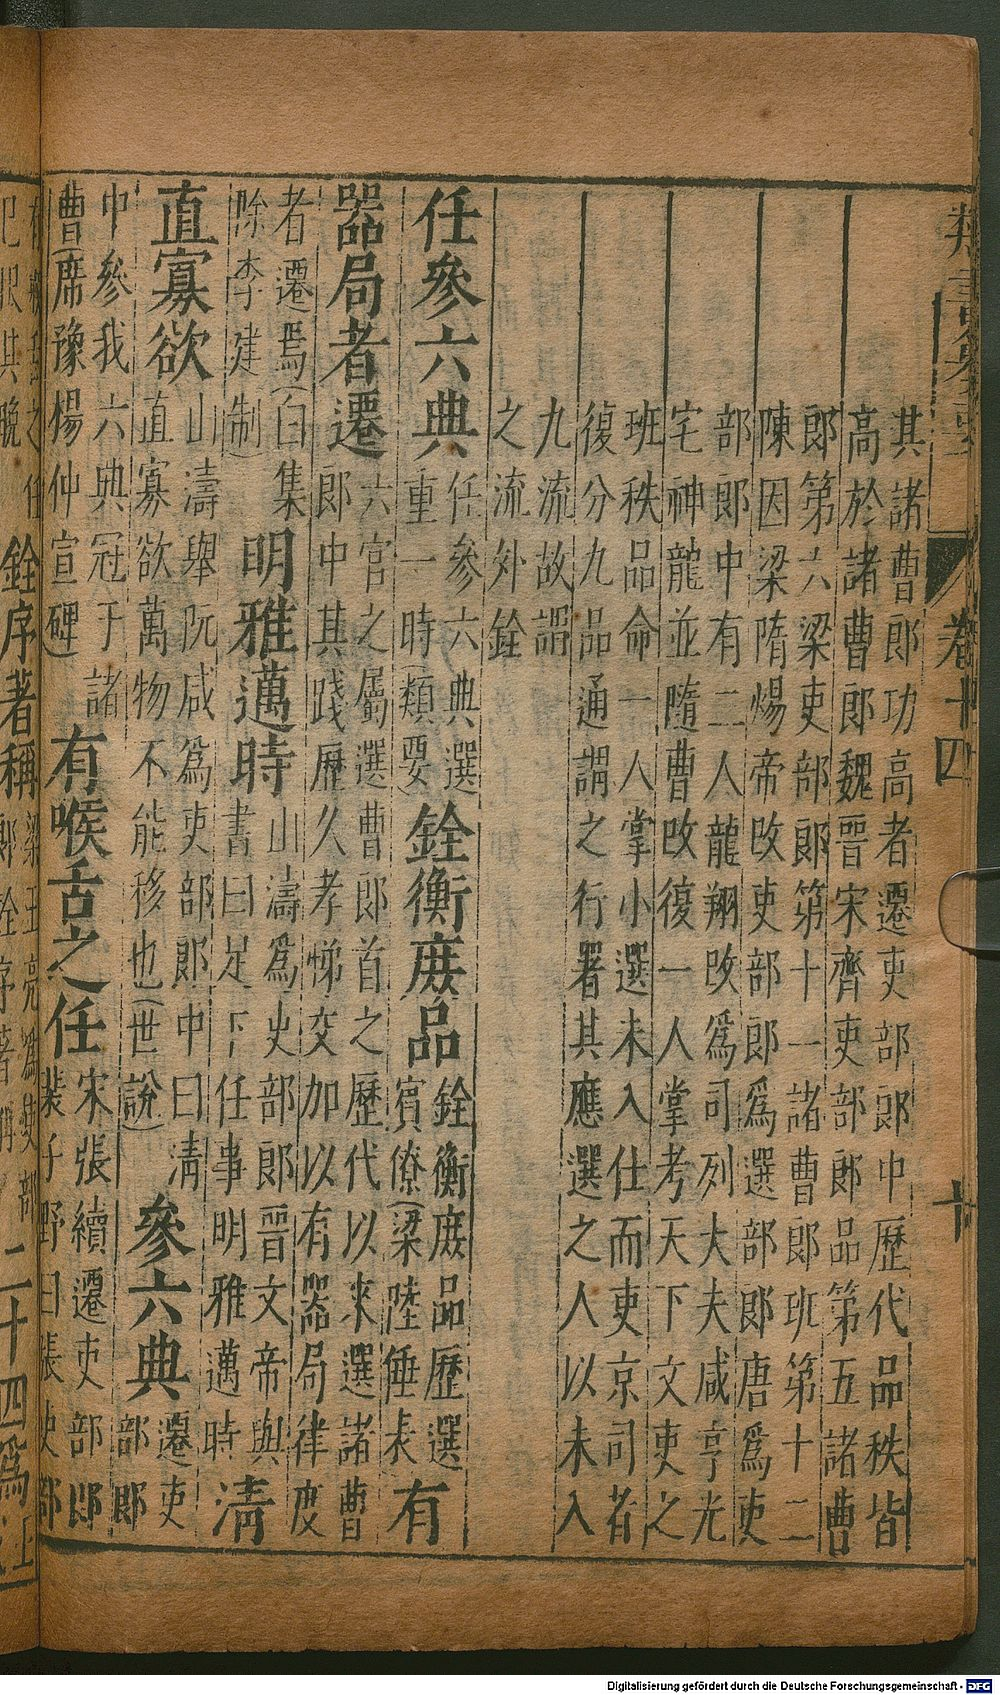 類書纂要 卷十四 十
其諸曹郎功高者遷吏部郎中歷代品秩皆
高於諸曹郎魏晉宋齊吏部郎品第五諸曹
郎第六梁吏部郎第十一諸曹郎班第十二
陳因梁隋煬帝改吏部郎為選部郎唐為吏
部郎中有二人龍翔改為司列大夫咸亨光
宅神龍並隨曹改復一人掌考天下文吏之
班秩品命一人掌小選未入仕而吏京司者
復分九品通謂之行署其應選之人以未入
九流故謂
之流外銓
任參六典 任參六典選重一時(類要) 銓衡庶品 銓衡庶品歷選賓僚(梁陸倕表) 有
器局者遷 六官之屬選曹郎首之歷代以來選諸曹郎中其踐歷久孝悌交加以有器局律度
者遷焉(白集除李建制) 明雅邁時 山濤為史部郎晉文帝與書曰足下任事明雅邁時 清
直寡欲 山濤舉阮咸為吏部郎中曰清直寡欲萬物不能移也(世說) 參六典 遷吏部郎
中參我六典冠于諸曹(席豫楊仲宣碑) 有喉舌之任 宋張續遷吏部郎裴子野曰張吏部
之任 銓序著稱 梁王亮為吏部郎銓序著稱 二十四為
Digitalisierung gefördert durch die Deutsche Forschungsgemeinschaft - DFG